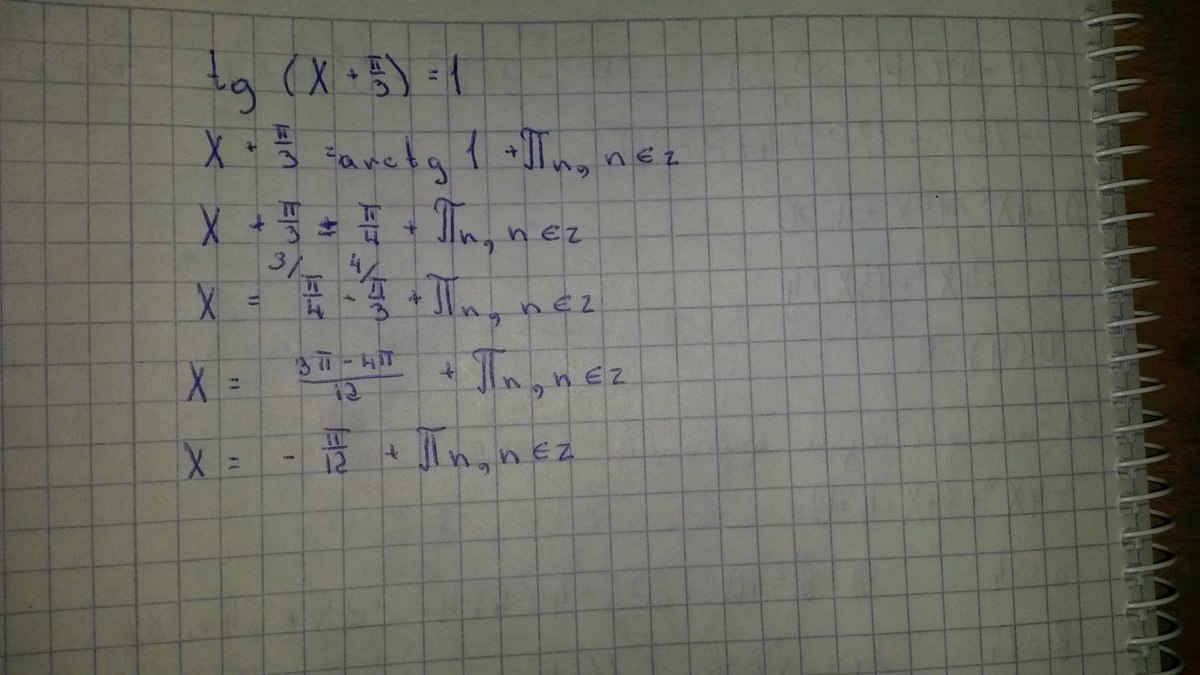 tg (x + π/3) = 1
x + π/3 = arctg 1 + πn, n ∈ z
x + π/3 = π/4 + πn, n ∈ z
x = 3/ π/4 - 4/ π/3 + πn, n ∈ z
x = (3π - 4π)/12 + πn, n ∈ z
x = - π/12 + πn, n ∈ z